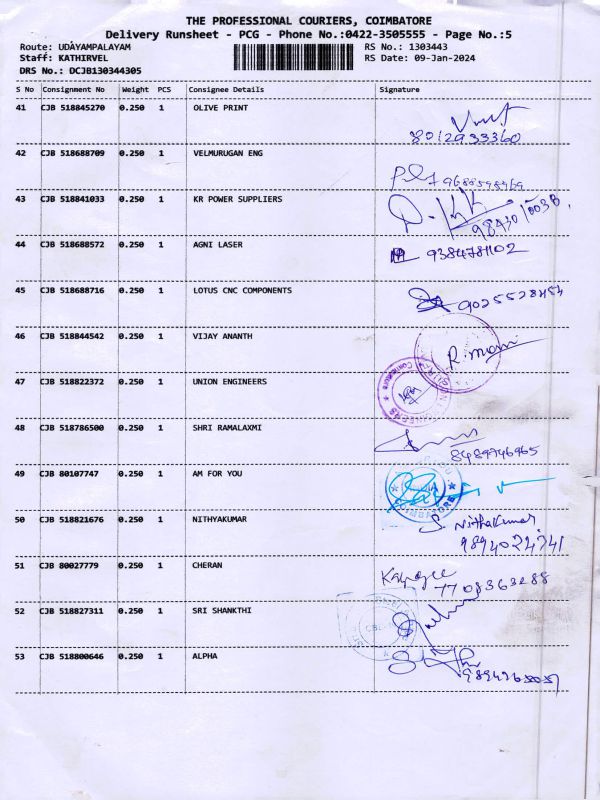 THE PROFESSIONAL COURIERS, COIMBATORE
Delivery Runsheet - PCG - Phone No.:0422-3505555 - Page No.:5
Route: UDAYAMPALAYAM RS No.: 1303443
Staff: KATHIRVEL RS Date: 09-Jan-2024
DRS No.: DCJB130344305
S No Consignment No Weight PCS Consignee Details Signature
41 CJB 518845270 0.250 1 OLIVE PRINT
8012933360
42 CJB 518688709 0.250 1 VELMURUGAN ENG
43 CJB 518841033 0.250 1 KR POWER SUPPLIERS
44 CJB 518688572 0.250 1 AGNI LASER
45 CJB 518688716 0.250 1 LOTUS CNC COMPONENTS
46 CJB 518844542 0.250 1 VIJAY ANANTH
R. mani
47 CJB 518822372 0.250 1 UNION ENGINEERS
48 CJB 518786500 0.250 1 SHRI RAMALAXMI
8489746965
49 CJB 80107747 0.250 1 AM FOR YOU
50 CJB 518821676 0.250 1 NITHYAKUMAR
S. Nithakumar
9894024741
51 CJB 80027779 0.250 1 CHERAN
7708363288
52 CJB 518827311 0.250 1 SRI SHANKTHI
53 CJB 518800646 0.250 1 ALPHA